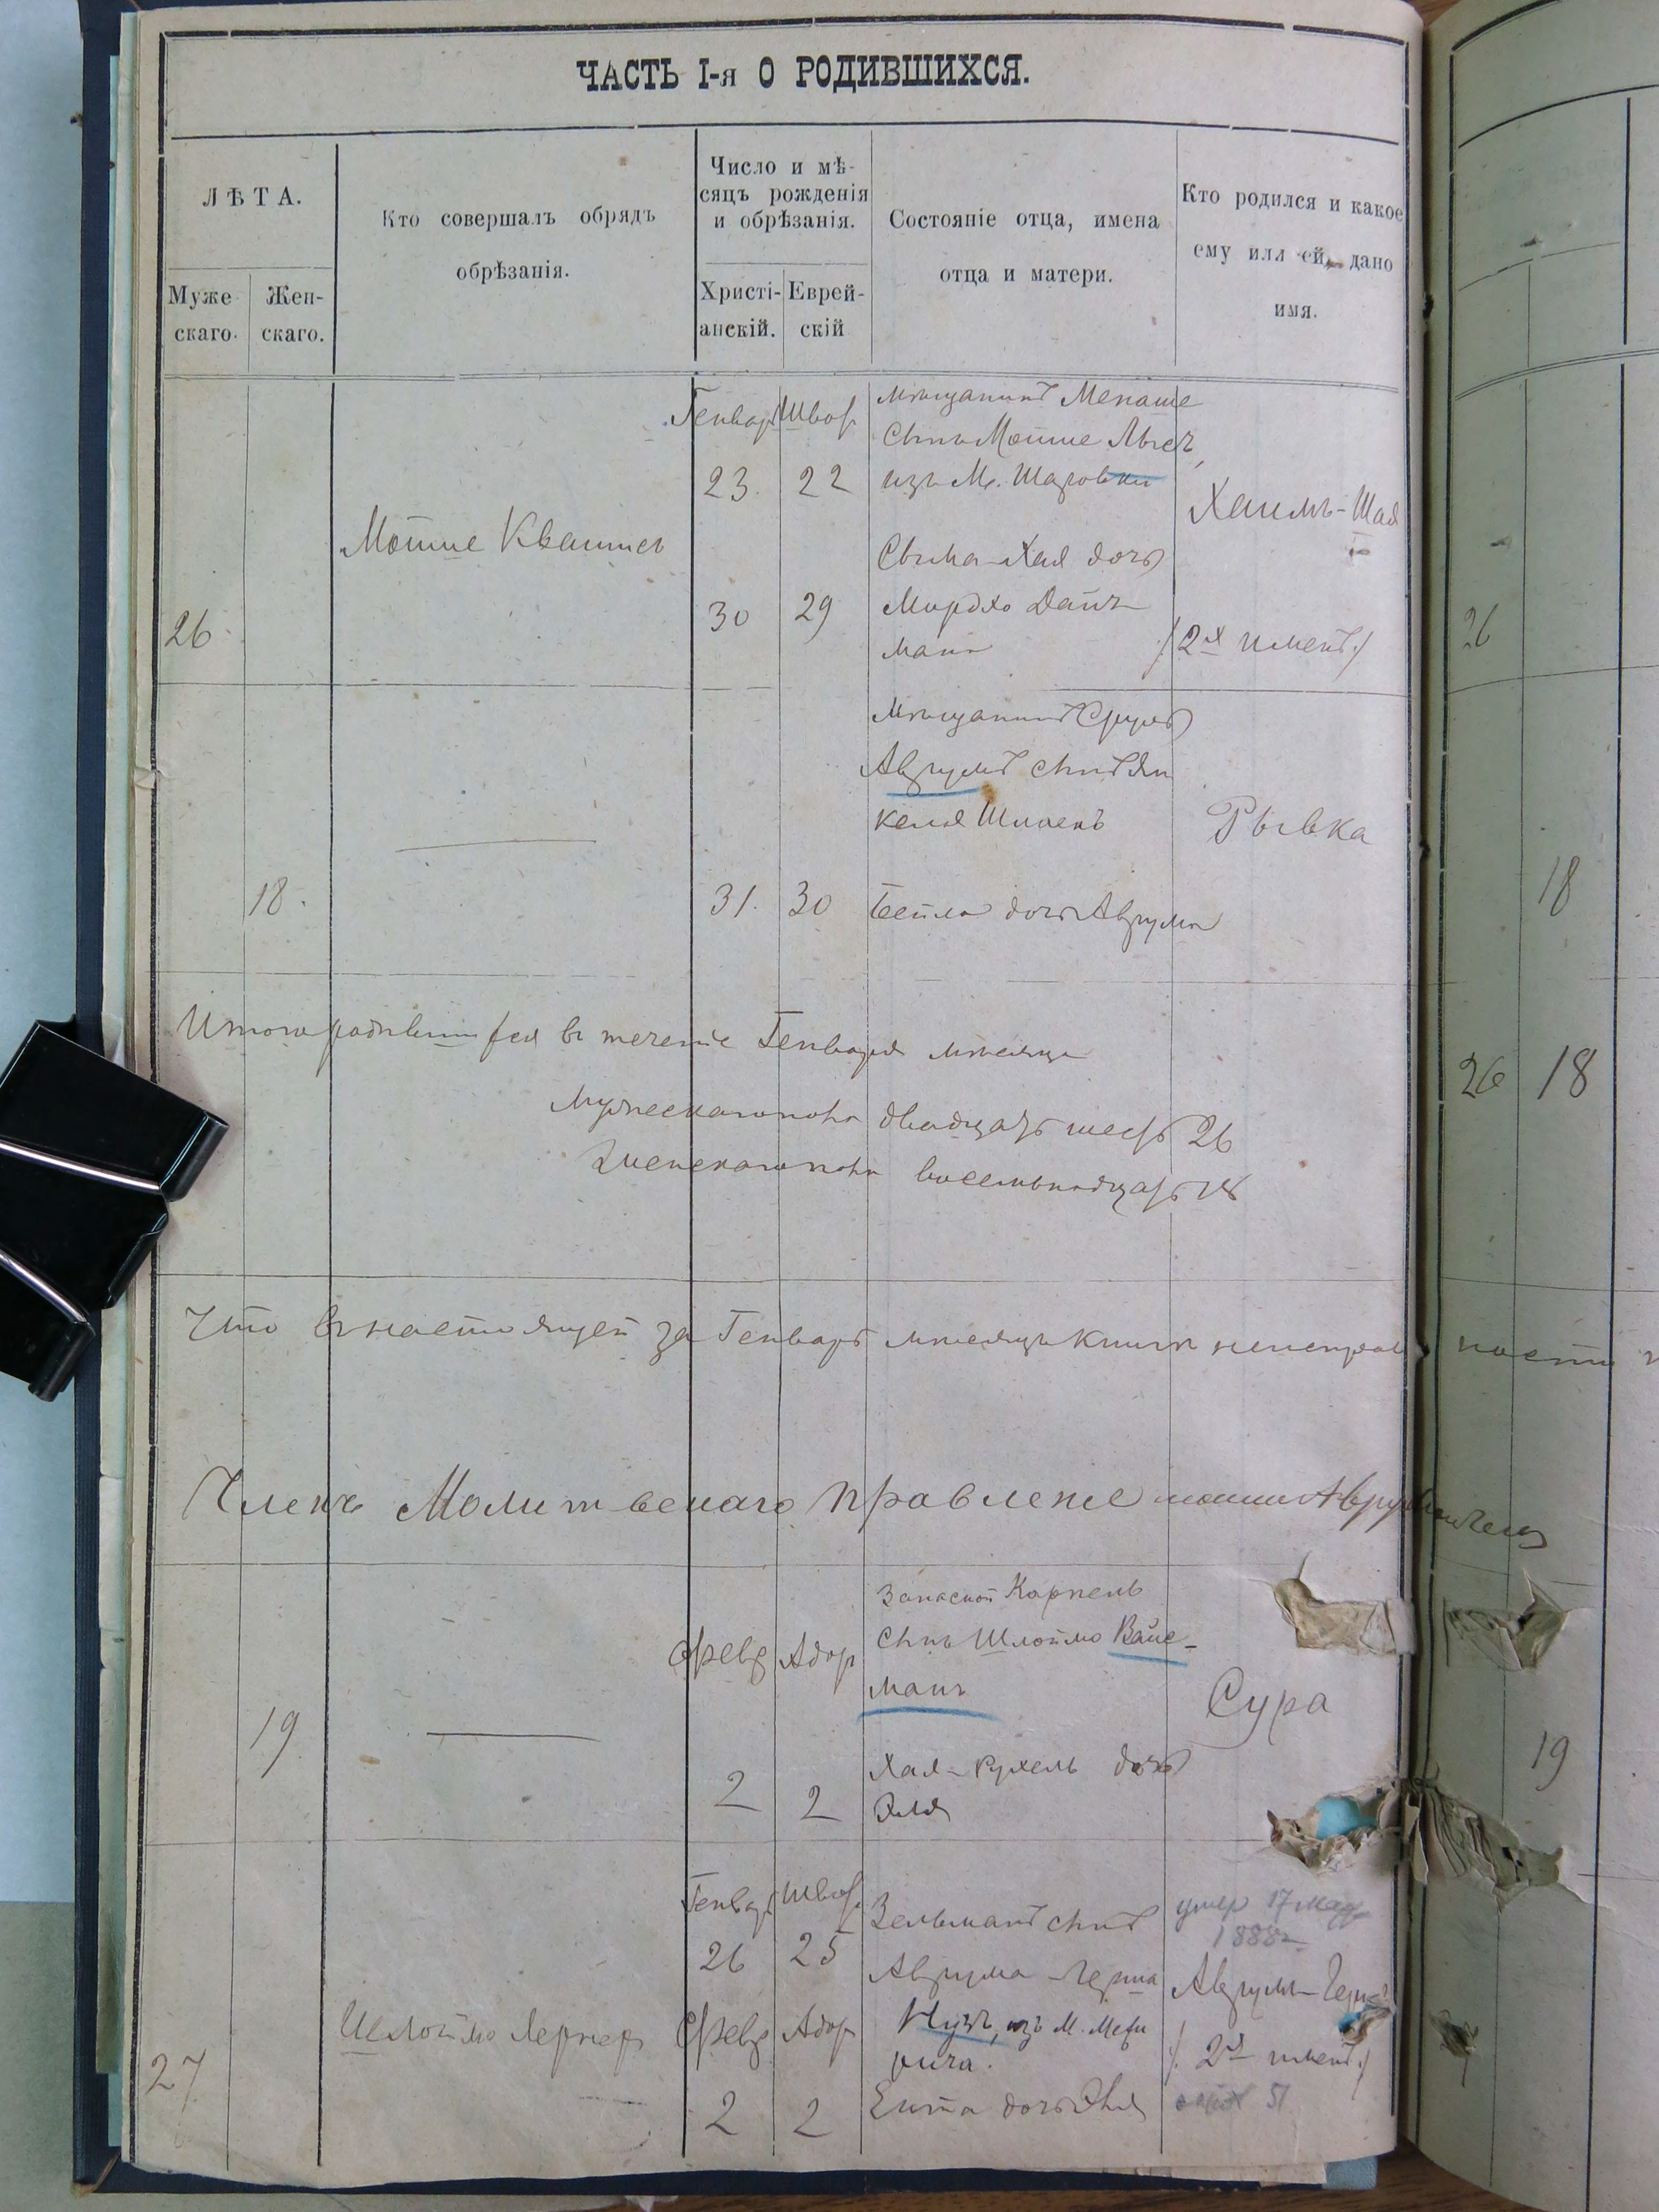 ЧАСТЬ I-я О РОДИВШИХСЯ.
ЛѢТА.
Муже-
скаго.
Жен-
скаго.
Кто совершалъ обрядъ
обрѣзанія.
Число и мѣ-
сяцъ рожденія
и обрѣзанія.
Христі-
анскій.
Еврей-
скій
Состояніе отца, имена
отца и матери.
Кто родился и какое
ему или ей дано
имя.
26
Мошше
Генварь Швор
23. 22
30 29
мѣщанинъ Менаше
Сынъ Мошше
изъ М. Шаровки
Сыма-Хая дочь
Мордхо Дайч
манъ
Хаимъ-Шая
/2х именъ/
18.
31. 30
Мѣщанинъ Сруль
Аврумъ сынъ Ян
келя
Бейла дочь Аврума
Рывка
Итого родившихся въ теченіе Генваря мѣсяца
Мужескаго пола двадцать шесть 26
Женскаго пола восемьнадцать 18
Что въ настоящей за Генварь мѣсяцъ книгѣ неисправ ности
Членъ Молитвенаго правленіе
19
Февр Адор
2 2
Запасной Карпель
Сынъ Шлоймо Вайс-
манъ
Хая-Рухель дочь
Эля
Сура
27
Шлоймо Лернер
Генвар Швор
26 25
Февр Адор
2 2
Зельманъ сынъ
Аврума-Герша
изъ М. Межи
рича.
Ента дочь
умер 17
1888 г.
Аврумъ-Герш
/2х именъ/
51
26
18
26 18
19